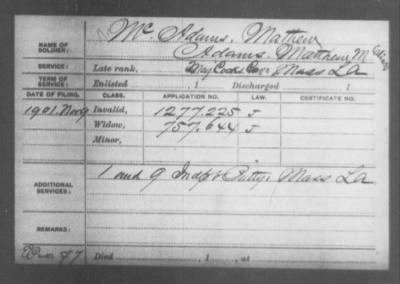 Mc Adams, Mathew
NAME OF SOLDIER: Adams, Matthew M
SERVICE: Late rank, May Cooks Co, Mass LA
TERM OF SERVICE: Enlisted , 1 Discharged , 1
DATE OF FILING. CLASS. APPLICATION NO. LAW. CERTIFICATE NO.
1901. Nov 9 Invalid, 1277.225 J
Widow, 757.644 J
Minor,
ADDITIONAL SERVICES: 1 and 9 Mass LA
REMARKS:
Died , 1 , at